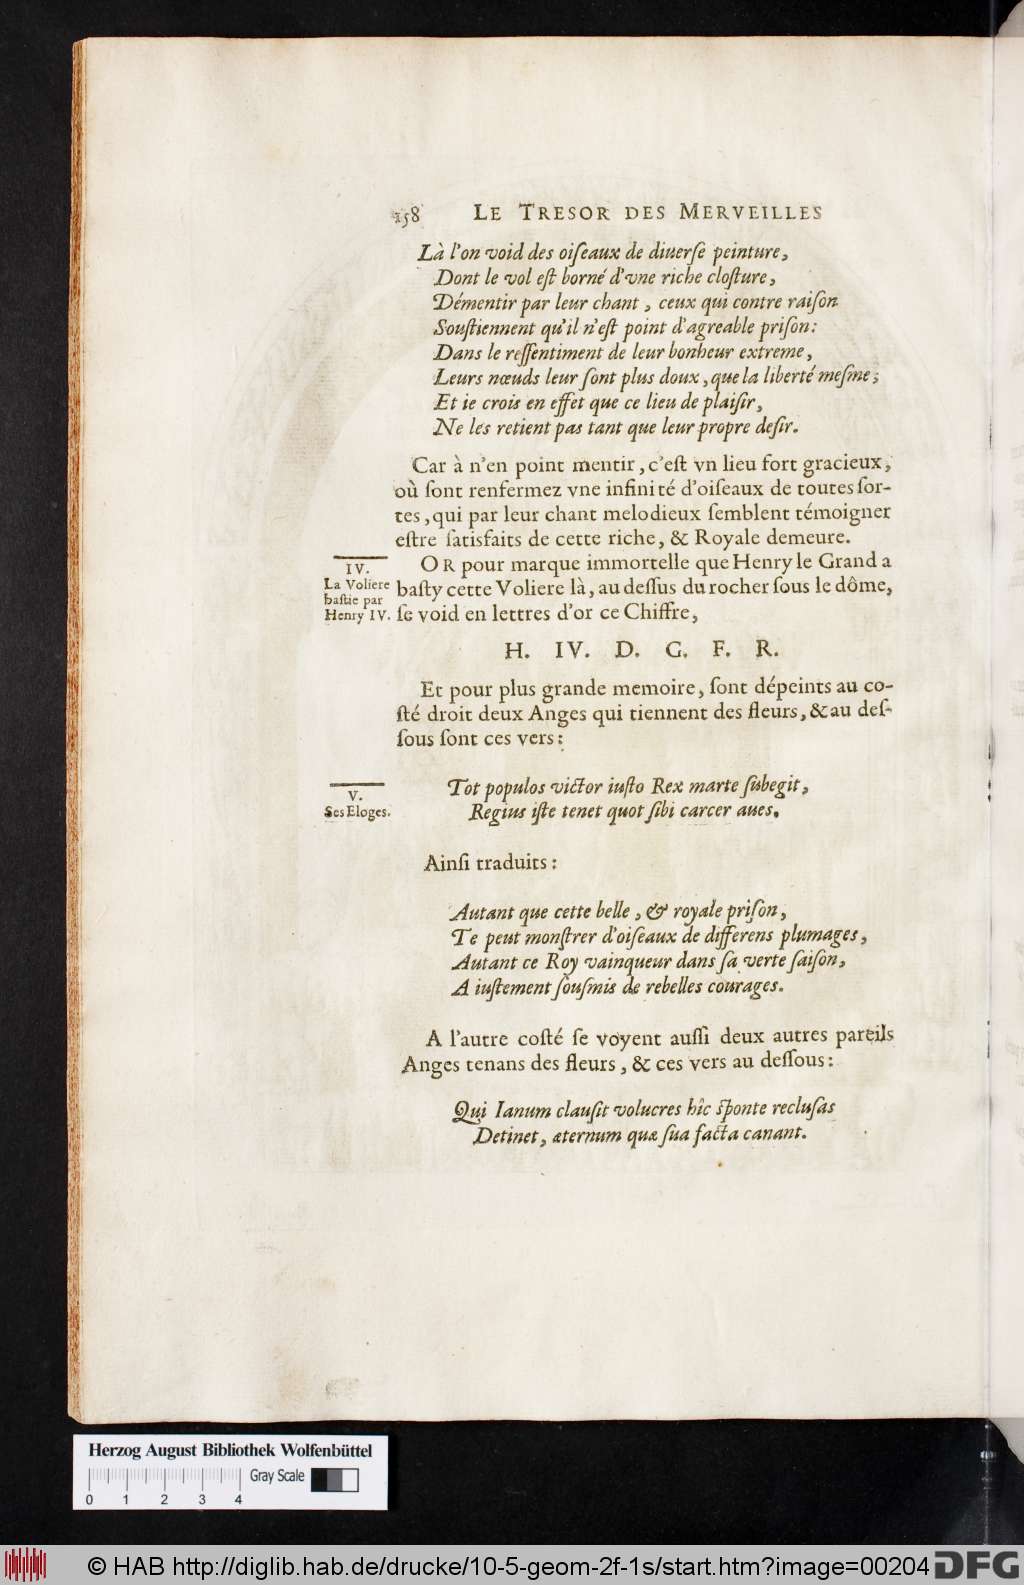 158 LE TRESOR DES MERVEILLES
Là l'on void des oiſeaux de diuerſe peinture,
Dont le vol eſt borné d'vne riche cloſture,
Démentir par leur chant, ceux qui contre raiſon
Souſtiennent qu'il n'eſt point d'agreable priſon:
Dans le reſſentiment de leur bonheur extreme,
Leurs nœuds leur ſont plus doux, que la liberté meſme;
Et ie crois en effet que ce lieu de plaiſir,
Ne les retient pas tant que leur propre deſir.
Car à n'en point mentir, c'eſt vn lieu fort gracieux,
où ſont renfermez vne infinité d'oiſeaux de toutes ſor-
tes, qui par leur chant melodieux ſemblent témoigner
eſtre ſatisfaits de cette riche, & Royale demeure.
IV.
La Voliere
baſtie par
Henry IV.
OR pour marque immortelle que Henry le Grand a
baſty cette Voliere là, au deſſus du rocher ſous le dôme,
ſe void en lettres d'or ce Chiffre,
H. IV. D. G. F. R.
Et pour plus grande memoire, ſont dépeints au co-
ſté droit deux Anges qui tiennent des fleurs, & au deſ-
ſous ſont ces vers:
V.
Ses Eloges.
Tot populos victor iuſto Rex marte ſubegit,
Regius iſte tenet quot ſibi carcer aues.
Ainſi traduits:
Autant que cette belle, & royale priſon,
Te peut monſtrer d'oiſeaux de differens plumages,
Autant ce Roy vainqueur dans ſa verte ſaiſon,
A iuſtement ſouſmis de rebelles courages.
A l'autre coſté ſe voyent auſſi deux autres pareils
Anges tenans des fleurs, & ces vers au deſſous:
Qui Ianum clauſit volucres hîc ſponte recluſas
Detinet, æternum quæ ſua facta canant.
Herzog August Bibliothek Wolfenbüttel
Gray Scale
0 1 2 3 4
© HAB http://diglib.hab.de/drucke/10-5-geom-2f-1s/start.htm?image=00204 DFG